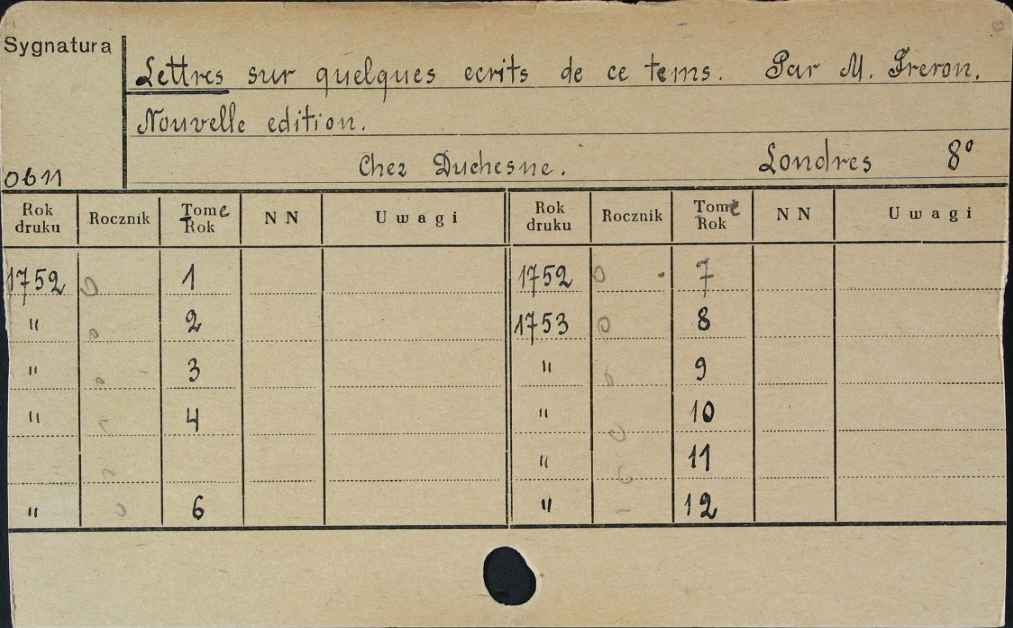 Sygnatura
Lettres sur quelques ecrits de ce tems. Par M. Freron.
Nouvelle edition.
Chez Duchesne. Londres 8°
Rok druku Rocznik Tome Rok NN Uwagi Rok druku Rocznik Tome Rok NN Uwagi
1752 0 1 1752 0 7
" 0 2 1753 0 8
" 0 3 " 9
" 4 " 10
" 11
" 6 " 12